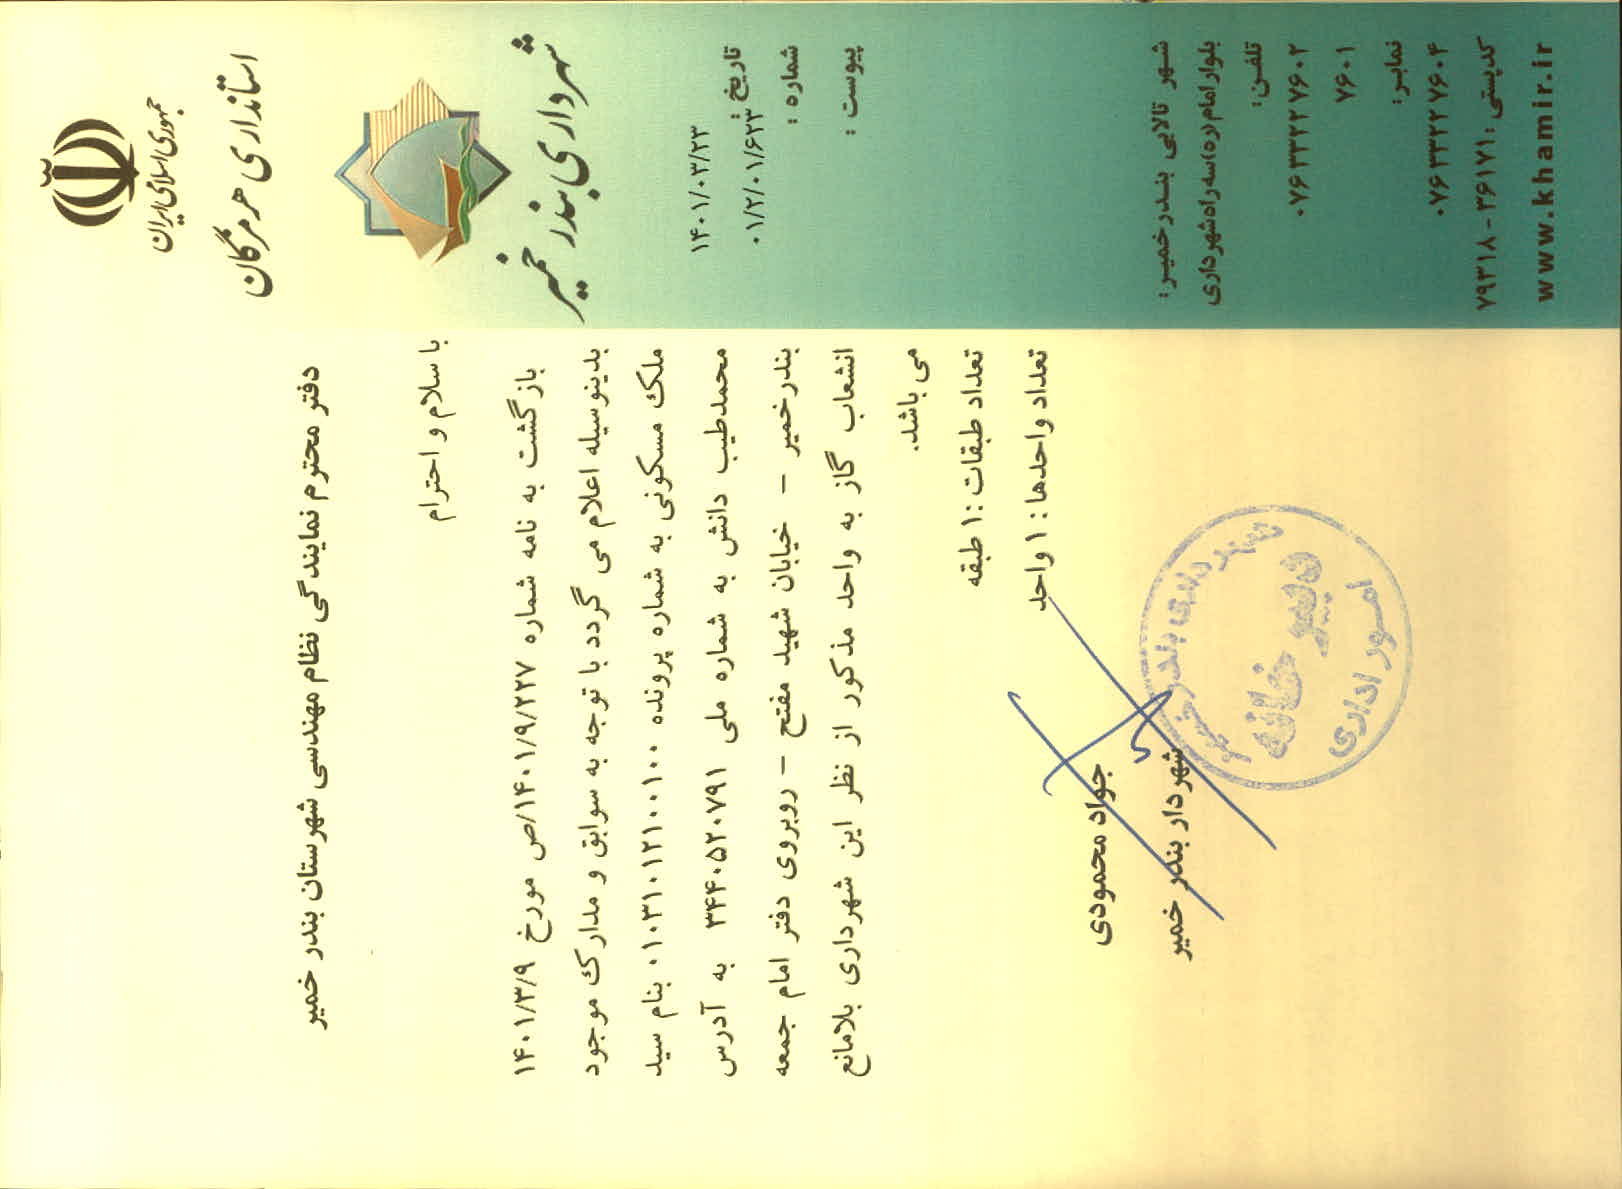 جمهوری اسلامی ایران
استانداری هرمزگان
شهرداری بندر خمیر
تاریخ : ۱۴۰۱/۰۳/۲۳
شماره : ۰۱/۲/۰۱/۶۲۳
پیوست :
دفتر محترم نمایندگی نظام مهندسی شهرستان بندر خمیر
با سلام و احترام
بازگشت به نامه شماره ۱۴۰۱/۹/۲۲۷/ص مورخ ۱۴۰۱/۳/۹
بدینوسیله اعلام می گردد با توجه به سوابق و مدارک موجود
ملک مسکونی به شماره پرونده ۰۱۰۳۱۰۱۲۱۰۰۱۰۰ بنام سید
محمدطیب دانش به شماره ملی ۳۴۴۰۵۲۰۷۹۱ به آدرس
بندرخمیر - خیابان شهید مفتح - روبروی دفتر امام جمعه
انشعاب گاز به واحد مذکور از نظر این شهرداری بلامانع
می باشد.
تعداد طبقات :۱ طبقه
تعداد واحدها : ۱ واحد
جواد محمودی
شهردار بندر خمیر
شهرداری بندر خمیر
دبیرخانه
امور اداری
شهر تالابی بندرخمیر:
بلوار امام(ره)سه راه شهرداری
تلفن:
۰۷۶۳۳۲۲۷۶۰۲
۷۶۰۱
نمابر:
۰۷۶۳۳۲۲۷۶۰۴
کدپستی :۳۶۱۷۱ - ۷۹۳۱۸
www.khamir.ir